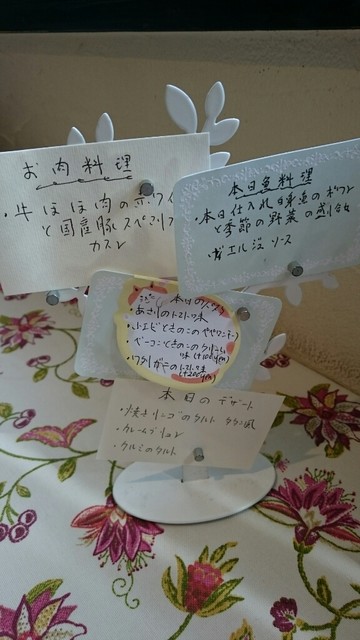 お肉料理
・牛ほほ肉の赤ワイ
と国産豚スペアリブ
本日魚料理
・本日仕入れ白身魚のポワレ
と季節の野菜の盛合せ
オマール海老ソース
本日のパスタ
・あさりのトマト味
・小エビときのこの
・ベーコンときのこのクリーム
味 (+100円)
・ワタリガニのトマト味
(+200円)
本日のデザート
・焼きリンゴのタルト タタン風
・クレームブリュレ
・クルミのタルト